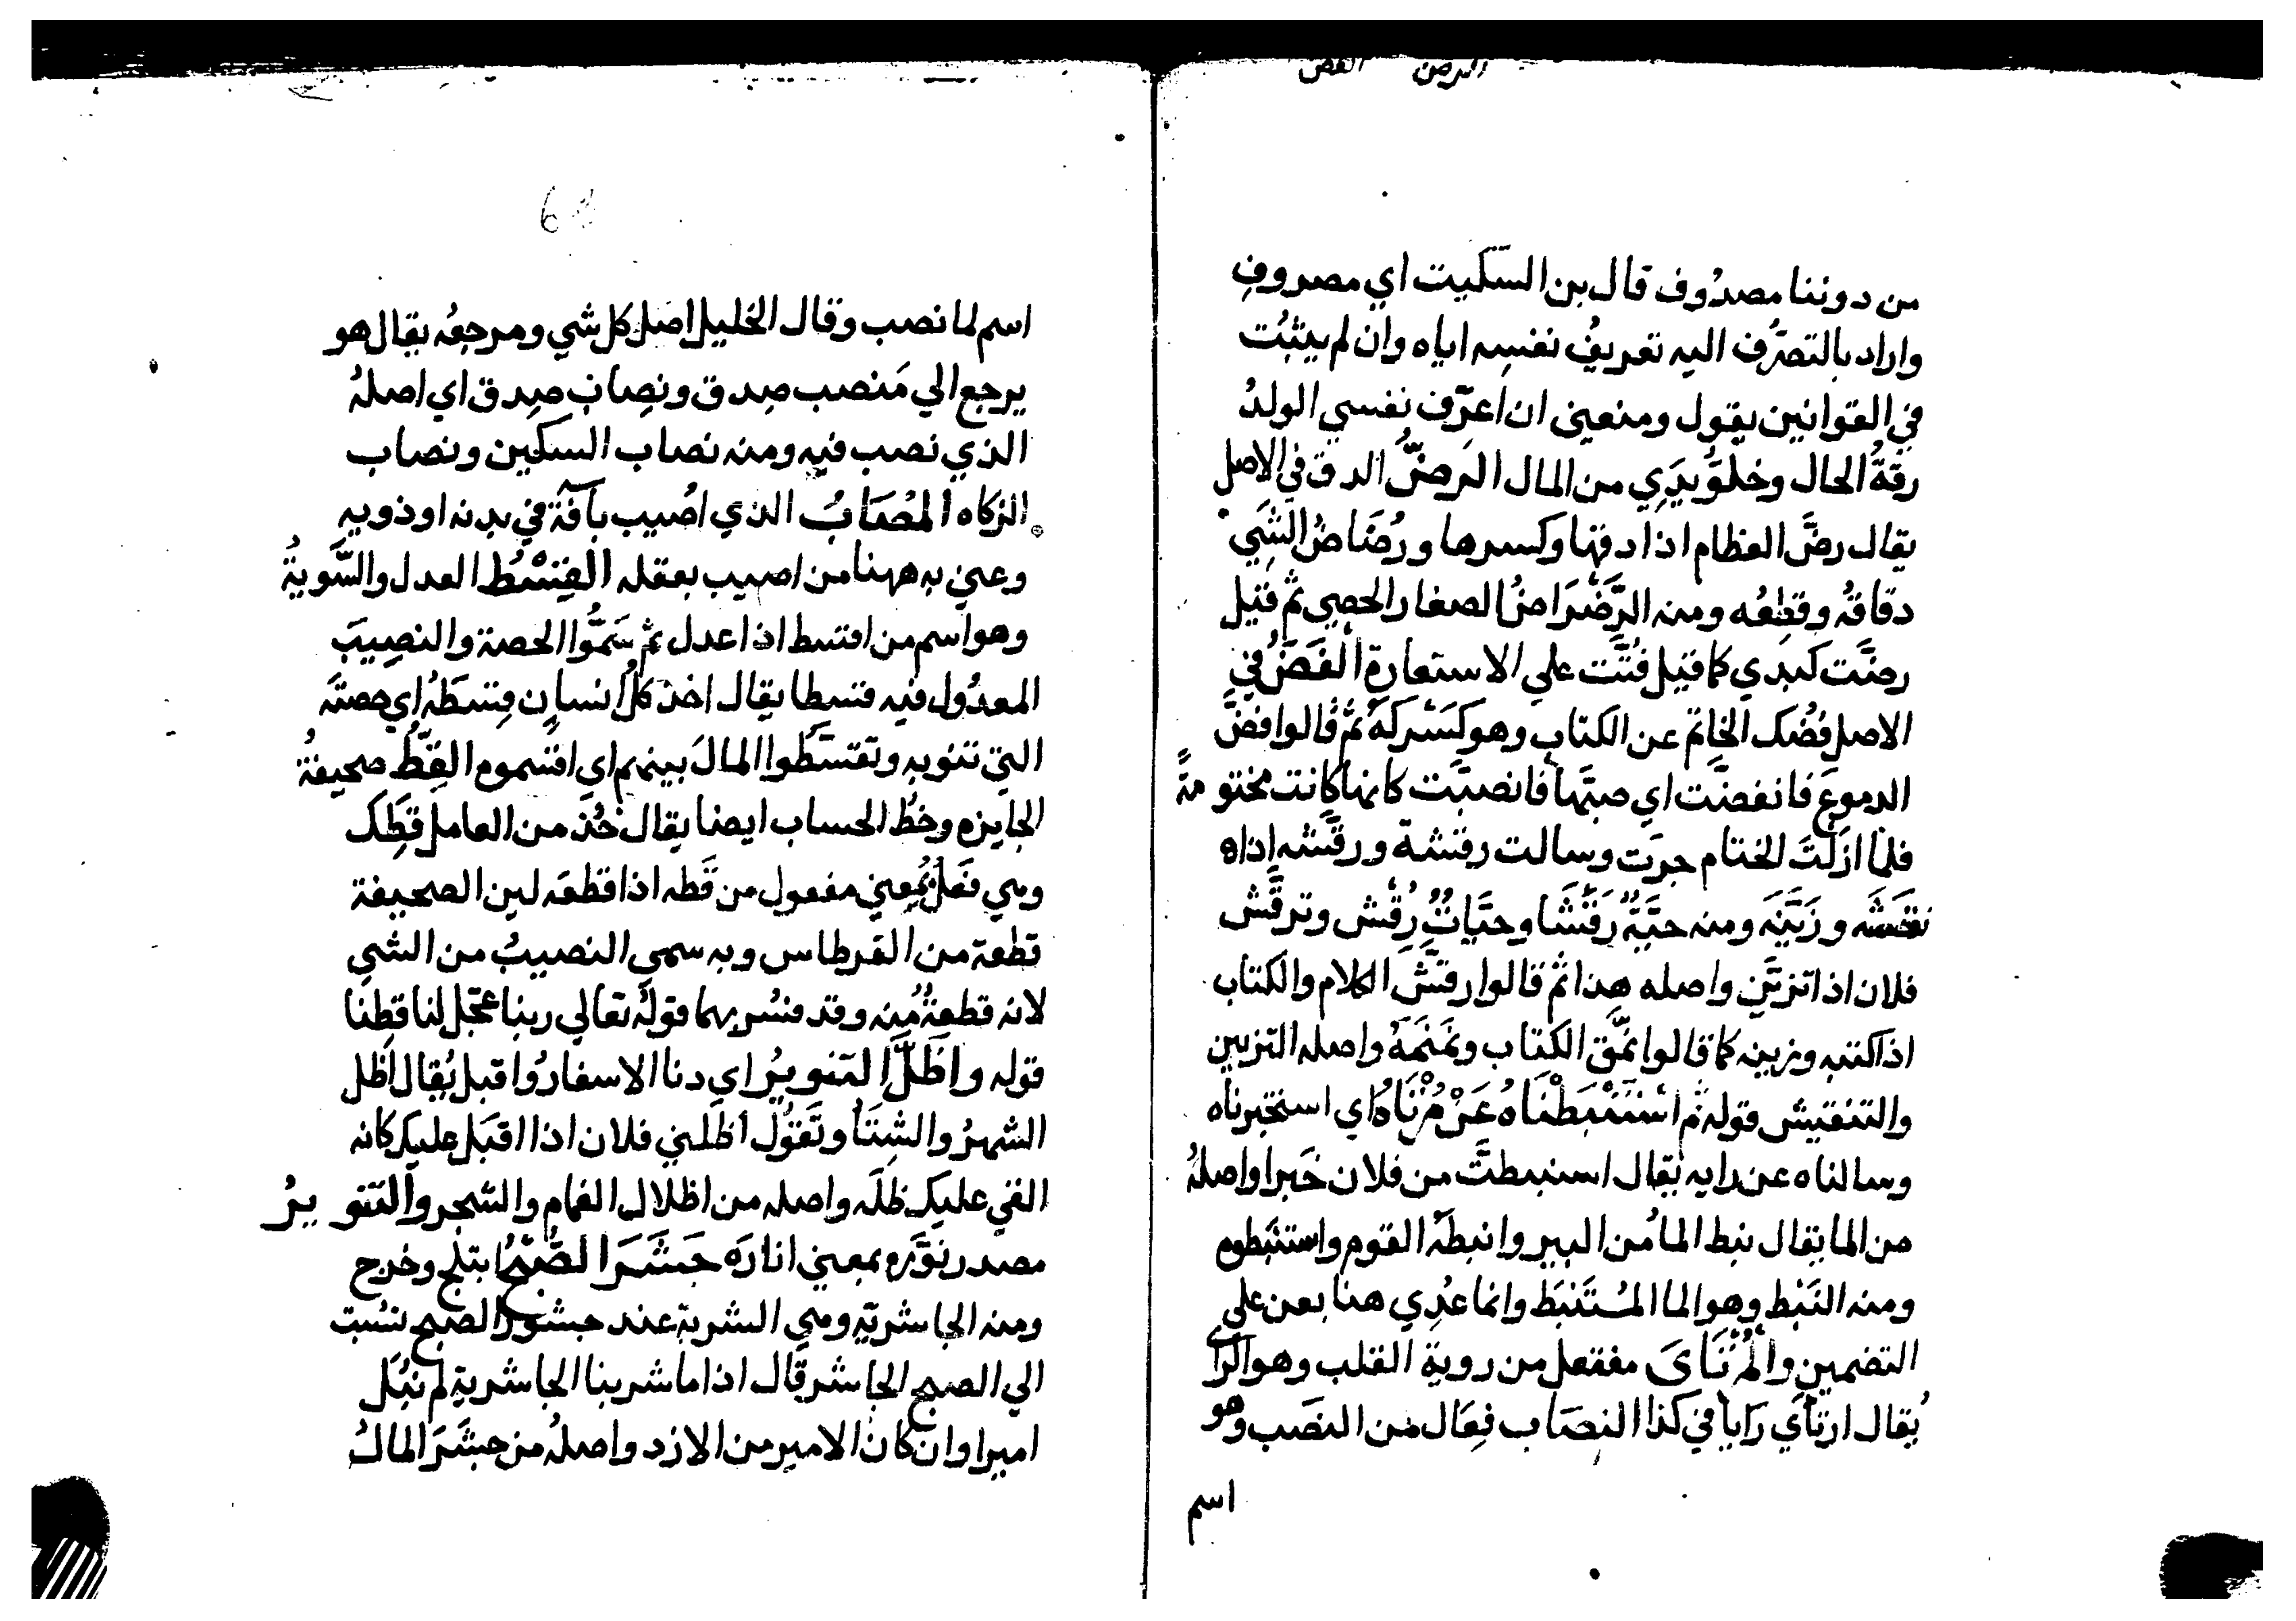 الرض الفض
من دوننا مصدُوف قال بن السكيت اي مصروفٍ
واراد بالتصرُّف اليه تعريفُ نفسِه اياه وان لم يثبُت
في القوانين يقول ومنعيني ان اعرّف نفسي الولدُ
رقةُ الحال وخلوُّ يدَي من المال الرضُّ الدق في الاصل
يقال رضَّ العظام اذا دقها وكسرها ورُضَاضُ الشي
دقاقُه وقطعُه ومنه الرَّضْرَاضُ الصغار الحصي ثم قيل
رضّت كبدي كما قيل فُتّت علي الاستعارة الفَضُّ في
الاصل فضُّك الخاتم عن الكتاب وهو كسْركهُ ثم قالوا فضَّ
الدموعَ فانفضّت اي صبّها فانصبّت كانها كانت مختومةً
فلما ازلتَ الختام جرَت وسالت رقشة ورقّشه اذاه
نقشَه وزَيَّنَه ومنه حيَّةٌ رَقْشَا وحيَّاتٌ رُقْش وترقَّش
فلان اذا تزيَّن واصله هذا ثم قالوا رقَّشَ الكلام والكتاب
اذا كتبه وزينه كما قالوا نمَّق الكتاب ونمنَمَهُ واصله التزيين
والتنقيش قوله ثم اسْتَنْبَطْنَاهُ عَنْ مُرْتَآهُ اي استخبرناه
وسالناه عن رايه يقال استنبطتَّ من فلان خَبرا واصلهُ
من الما يقال نبط الما من البير وانبطَهُ القوم واستنبَطوه
ومنه النَبْط وهو الما المُسْتَنبَط وانما عُدِي هنا بعن علي
التضمين والمُرْتَاىَ مفتعل من روية القلب وهو الراي
يُقال ارتأَي رَاياً في كذا النصَاب فِعَال من النصَب وهو
اسم
اسم لما نصب وقال الخليل اصل كل شي ومرجعُه يقال هو
يرجع الي مَنصب صِدق ونِصاب صِدق اي اصلهُ
الذي نصب فيه ومنه نصاب السكين ونصاب
الزكاه المُصَابُ الذي اُصيب بآفة في بدنه او ذويه
وعني به ههنا من اصيب بعقله القِسْطُ العدل والسَّويةُ
وهو اسم من اقسط اذا عدل ثم سَمُّوا الحصة والنصِيبَ
المعدُول فيه قسطا يقال اخذ كلُّ انسانٍ قِسطَهُ اي حصته
التي تنوبه وتقسَّطُوا المالَ بينهم اي اقتسموه القِطُّ صحيفةُ
الجايزه وخطُّ الحساب ايضا يقال خُذ من العامل قِطَّك
وهي فعلٌ بمعني مفعول من قَطه اذا قطعَه لين الصحيفة
قطعة من القرطاس وبه سمي النصيبُ من الشي
لانه قطعةٌ مِنه وقد فسّر بهما قولُه تعالي ربنا عجّل لنا قِطنا
قوله واظَلَّ التنويرُ اي دنا الاسفارُ واقبل يُقال اظل
الشهرُ والشِتَا وتقُول اظلني فلان اذا اقبَل عليك كانه
القي عليك ظلَه واصله من اظلال الغمام والشجر والتنويرُ
مصدر نوَّر بمعني انارَه جَشَرَ الصُّبْحُ ابتلج وخرج
ومنه الجاشريّة وهي الشربة عند جشور الصبح نسُبت
الي الصبح الجاشر قال اذا ما شربنا الجاشرية لم نُبَل
اميرا وان كان الامير من الازد واصلهُ من جشَرَ المالُ